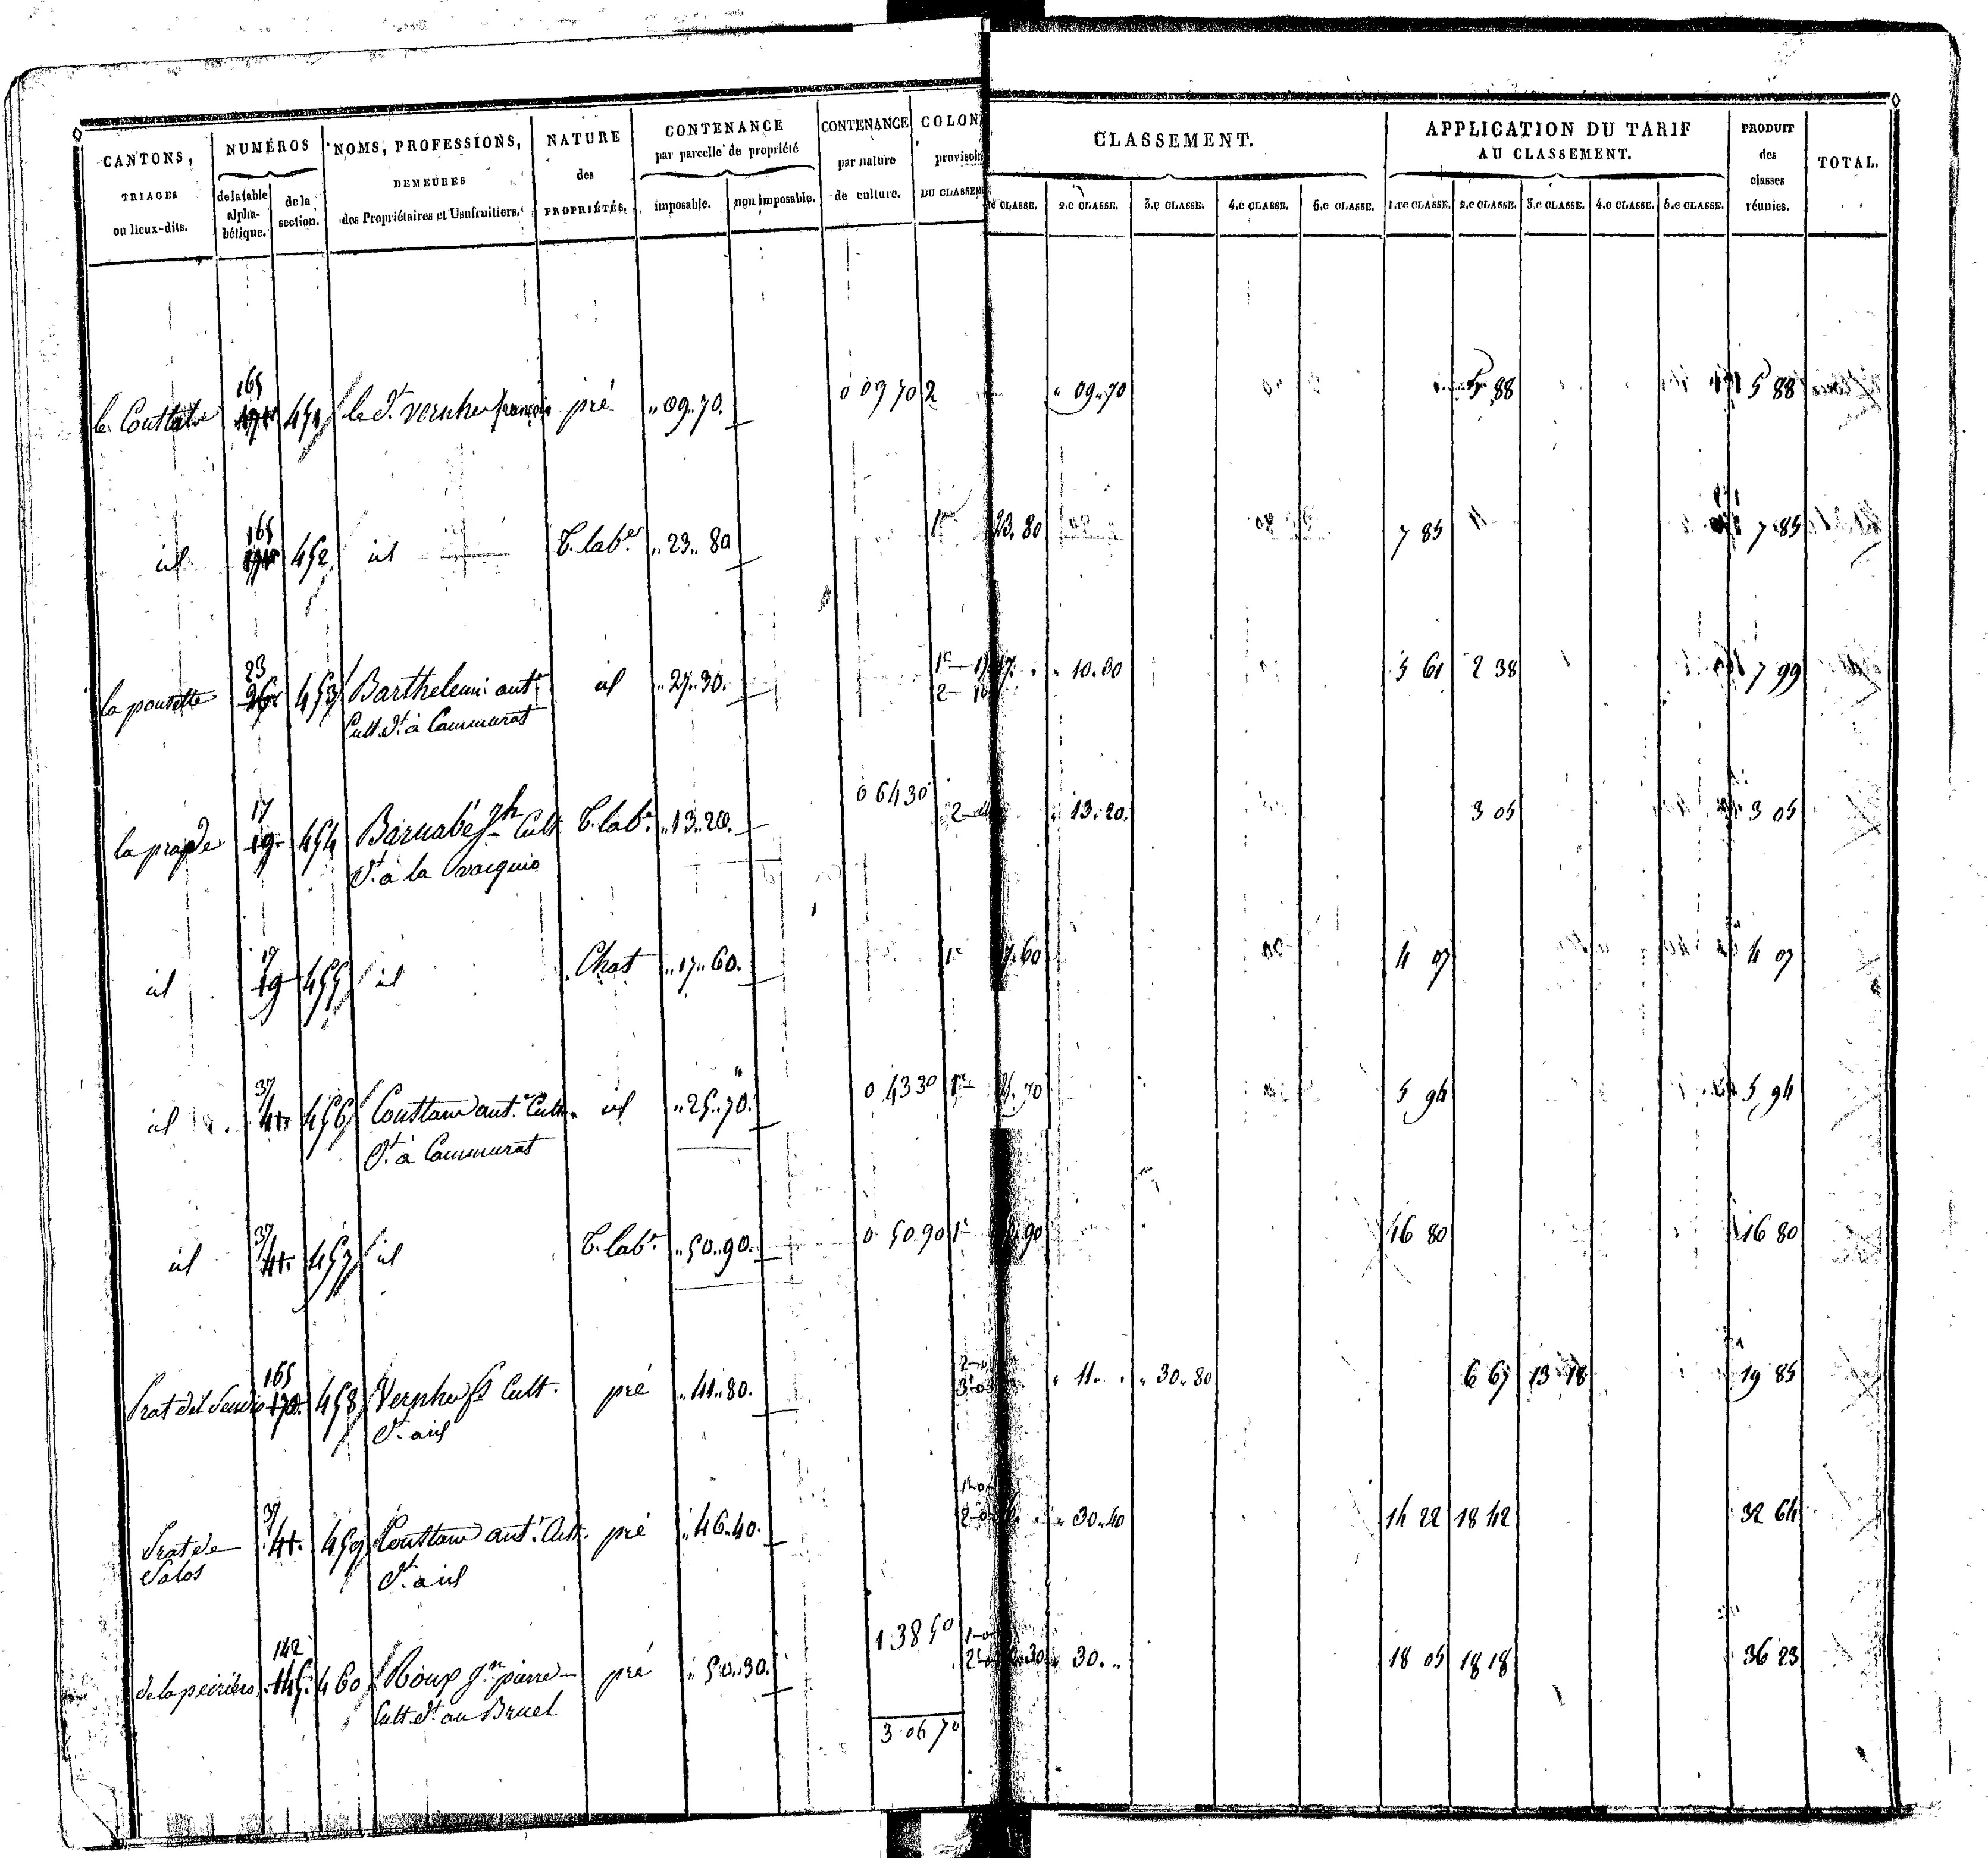 CANTONS, TRIAGES ou lieux-dits.
NUMÉROS
de la table alphabétique.
de la section.
NOMS, PROFESSIONS, DEMEURES des Propriétaires et Usufruitiers.
NATURE des PROPRIÉTÉS.
CONTENANCE par parcelle de propriété
imposable.
non imposable.
CONTENANCE par nature de culture.
COLON provisoir DU CLASSEM
CLASSEMENT.
re CLASSE. 2.e CLASSE. 3.e CLASSE. 4.e CLASSE. 5.e CLASSE.
APPLICATION DU TARIF AU CLASSEMENT.
1.re CLASSE. 2.e CLASSE. 3.e CLASSE. 4.e CLASSE. 5.e CLASSE.
PRODUIT des classes réunies.
TOTAL.
165 451 le d.t vernhe françois pré " 09 " 70. 0 09 70 2 " 09 " 70 5 88 5 88
id 165 452 id T. lab.le " 23 " 80 1e 23. 80 7 85 7 85
23
453 Barthelemi ant.e id " 27 " 30. 1e 2 " 10. 30 5 61 2 38 7 99
Cult. d.t à Caumurat
0 64 30
la prade 17 19 454 Barnabé Jh Cult T. lab.le " 13 " 20. 2 " 13 " 20. 3 05 3 05
d.t à la
id 17 19 455 id Chat " 17 " 60. 1e 7. 60 4 07 4 07
id 37 41 456 Couttam ant.e Cult. id " 25 " 70. 0 43 30 1e 70 5 94 5 94
d.t à Caumurat
id 37 41 457 id T. lab.le " 50 " 90. 0 50 90 1e 90 16 80 16 80
Prat del 165 170 458 Vernhe fs Cult. pré " 41 " 80. " 11 " " 30 " 80 6 67 13 18 19 85
d.t à id
Prat de 37 41 459 Couttam ant.e Cult. pré " 46 " 40. " 30 " 40 14 22 18 42 32 64
Salos d.t à id
142 1 38 50
de la peirière 145 460 Roux Jn pierre pré " 50 " 30. 30 " 30. " 18 05 18 18 36 23
Cult. d.t au Bruel
3 06 70